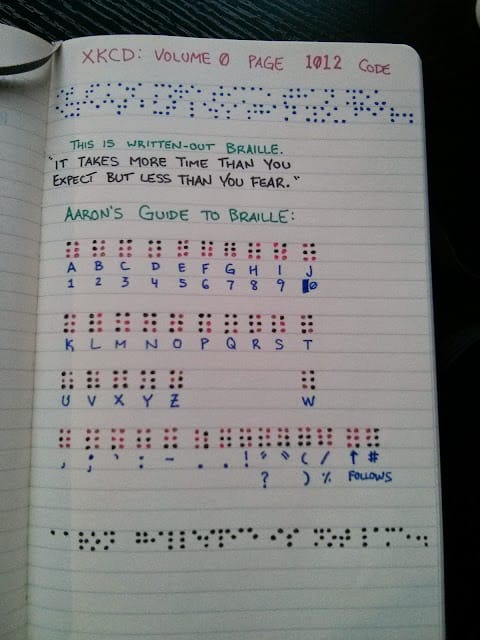 XKCD: VOLUME 0 PAGE 1012 CODE
THIS IS WRITTEN-OUT BRAILLE.
"IT TAKES MORE TIME THAN YOU
EXPECT BUT LESS THAN YOU FEAR."
AARON'S GUIDE TO BRAILLE:
A B C D E F G H I J
1 2 3 4 5 6 7 8 9 0
K L M N O P Q R S T
U V X Y Z W
, ; ' : - . . ! " " ( / ↑ #
? ) % FOLLOWS